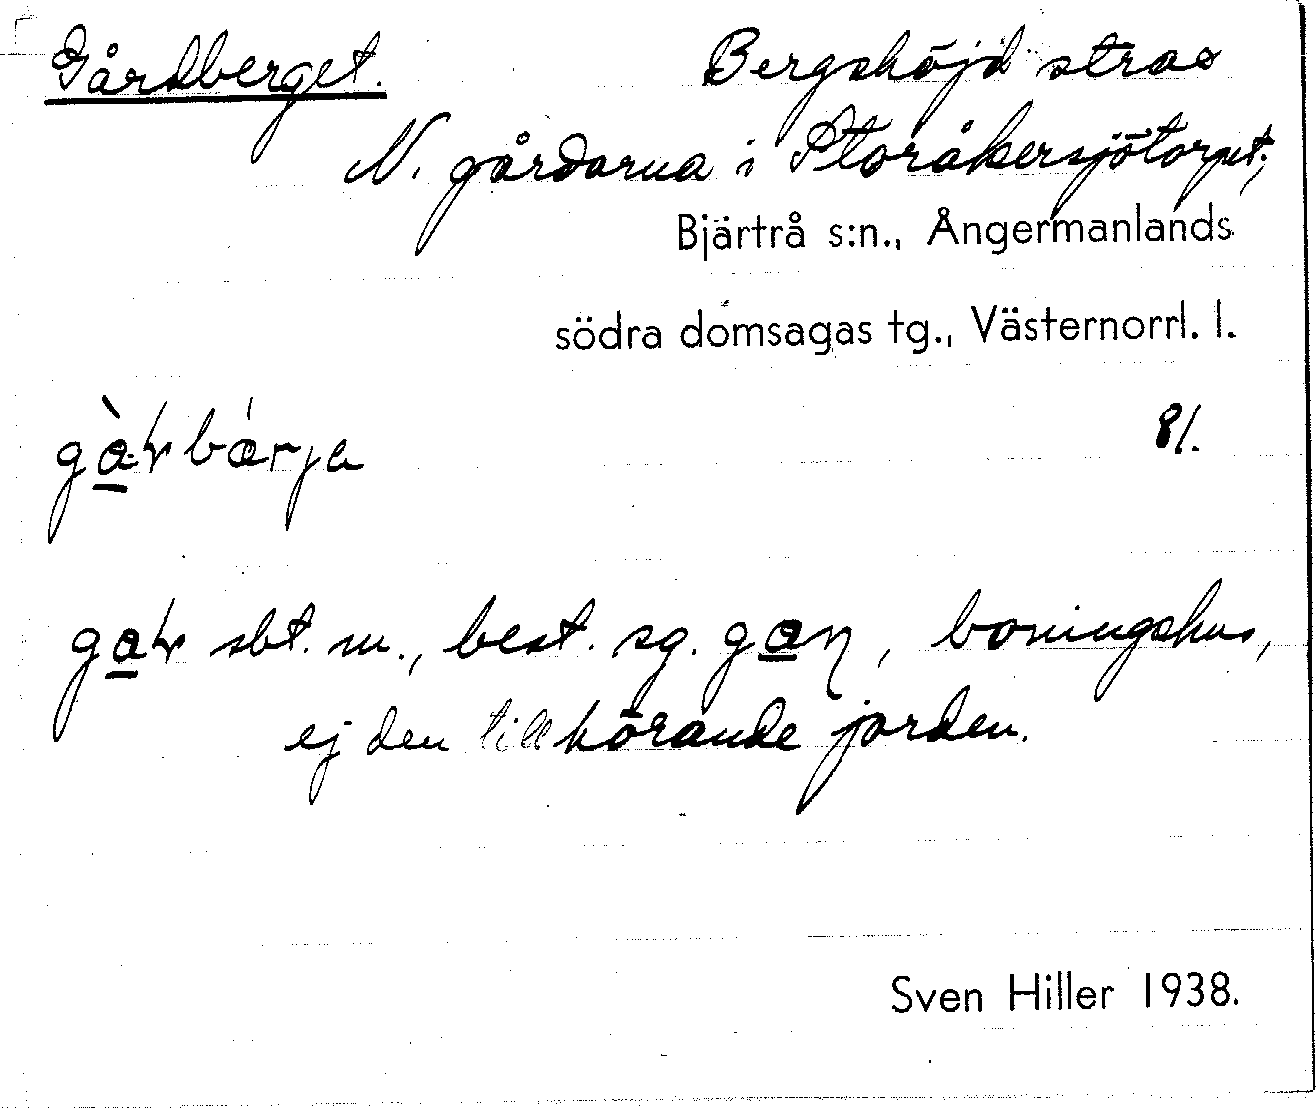 Gårdberget. Bergshöjd strax
N. gårdarna i Storåkersjötorpet;
Bjärtrå s:n., Ångermanlands
södra domsagas tg., Västernorrl. l.
81.
sbt. m., best. sg. boningshus,
ej den tillhörande jorden.
Sven Hiller 1938.